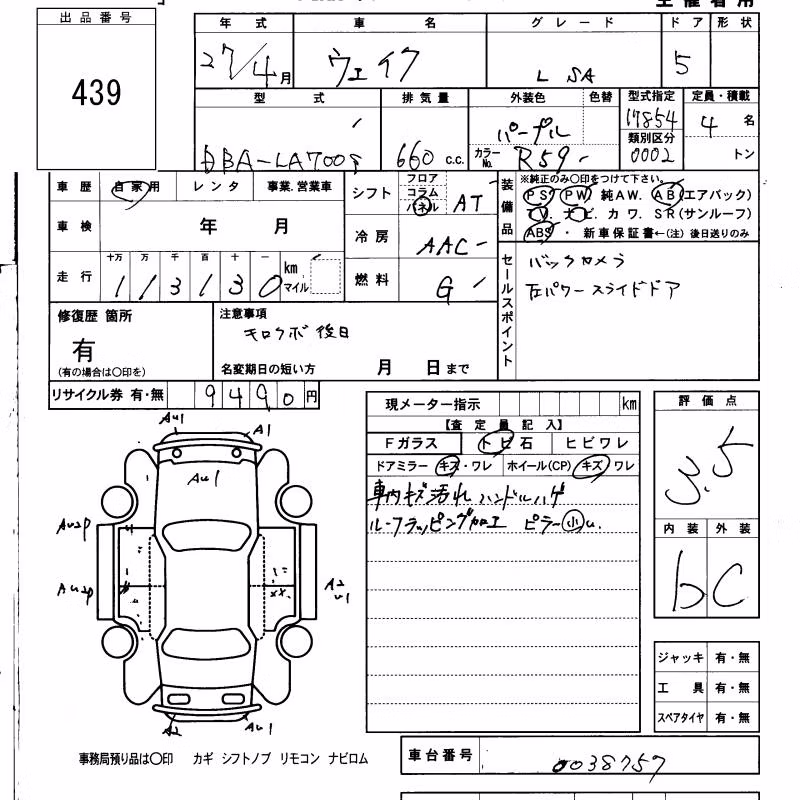 出品番号
439
年式 車名 グレード ドア 形状
27/4月 ウェイク L SA 5
型式 排気量 外装色 色替 型式指定 定員・積載
DBA-LA700S 660 c.c. パープル 17854 4名
カラーNo. R59 類別区分 0002 トン
車歴 自家用 レンタ 事業.営業車
車検 年 月
走行 十万 万 千 百 十 一 km マイル
113130
シフト フロア コラム パネル AT
冷房 AAC
燃料 G
装備品 ※純正のみ○印をつけて下さい。
PS PW 純AW. AB(エアバック)
TV. ナビ. カワ. SR(サンルーフ)
ABS・ 新車保証書←(注)後日送りのみ
セールスポイント
バックカメラ
左パワースライドドア
修復歴 箇所
有
(有の場合は○印を)
注意事項
キロクボ 後日
名変期日の短い方 月 日まで
リサイクル券 有・無 9490円
現メーター指示 km
【査定員記入】
Fガラス トビ石 ヒビワレ
ドアミラー キズ・ワレ ホイール(CP) キズ ワレ
車内キズ汚れ ハンドルハゲ
ルーフラッピング加工 ピラー小u.
評価点
3.5
内装 外装
b C
AU1
A1
AU1
AU2P
AU2P
A2
U1
A2
AU1
ジャッキ 有・無
工具 有・無
スペアタイヤ 有・無
事務局預り品は○印 カギ シフトノブ リモコン ナビロム
車台番号 0038757